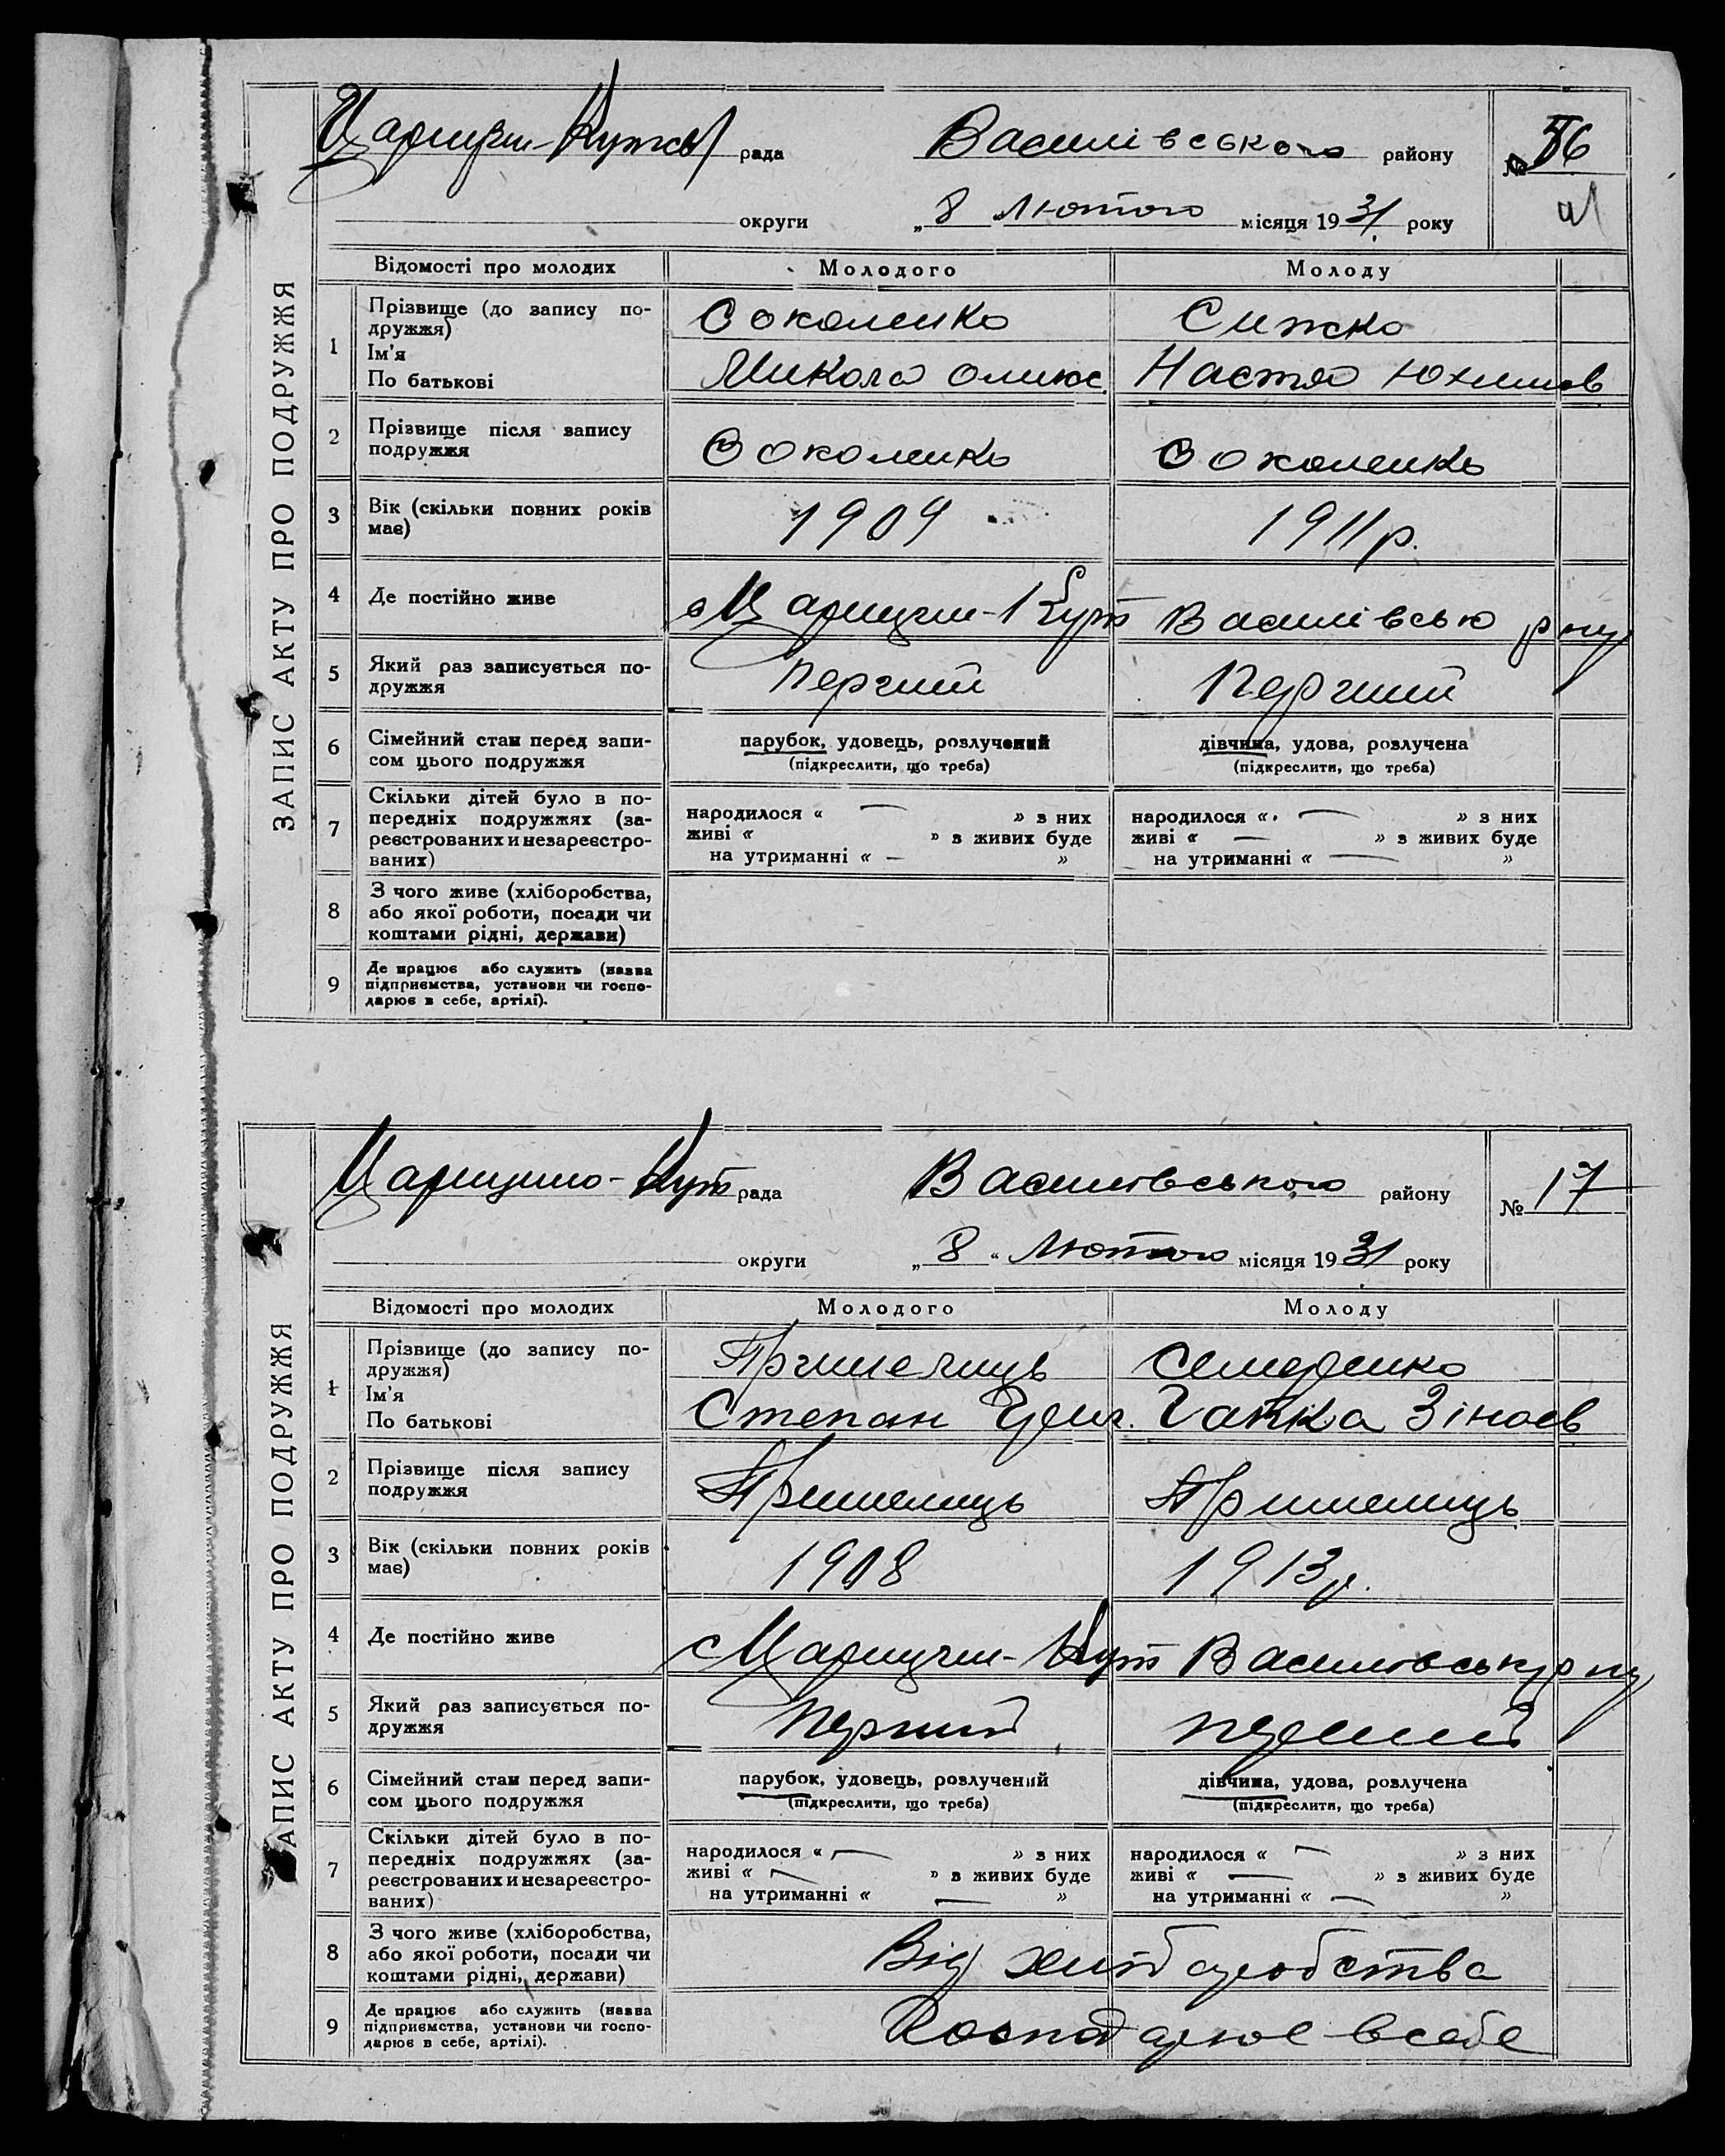 ЗАПИС АКТУ ПРО ПОДРУЖЖЯ
рада Василівського району №
округи „8 Лютого місяця 1931 року
Відомості про молодих Молодого Молоду
1 Прізвище (до запису по-
дружжя) Соколенко Сижко
Ім'я
По батькові Микола Настя Юхимов
2 Прізвище після запису
подружжя Соколенко Соколенко
3 Вік (скільки повних років
має) 1909 1911 р.
4 Де постійно живе с Царицин-Кут Василівсько р ну
5 Який раз записується по-
дружжя Перший Перший
6 Сімейний стан перед запи-
сом цього подружжя парубок, удовець, розлучений дівчина, удова, розлучена
(підкреслити, що треба) (підкреслити, що треба)
7 Скільки дітей було в по-
передніх подружжях (за-
реєстрованих и незареєстро-
ваних) народилося « — » з них народилося « — » з них
живі « » з живих буде живі « — » з живих буде
на утриманні « — » на утриманні « — »
8 З чого живе (хліборобства,
або якої роботи, посади чи
коштами рідні, держави)
9 Де працює або служить (назва
підприємства, установи чи госпо-
дарює в себе, артілі).
ЗАПИС АКТУ ПРО ПОДРУЖЖЯ
Царицино-Кут рада Василівського району № 17
округи „8 “ Лютого місяця 1931 року
Відомості про молодих Молодого Молоду
1 Прізвище (до запису по-
дружжя) Пришелець Семеренко
Ім'я
По батькові Степан Григ. Гапка Зіновв
2 Прізвище після запису
подружжя Пришелець Пришелець
3 Вік (скільки повних років
має) 1908 1913 р.
4 Де постійно живе с Царицин-Кут Василівськ р ну
5 Який раз записується по-
дружжя Перший перший
6 Сімейний стан перед запи-
сом цього подружжя парубок, удовець, розлучений дівчина, удова, розлучена
(підкреслити, що треба) (підкреслити, що треба)
7 Скільки дітей було в по-
передніх подружжях (за-
реєстрованих и незареєстро-
ваних) народилося « — » з них народилося « — » з них
живі « — » в живих буде живі « — » з живих буде
на утриманні « — » на утриманні « — »
8 З чого живе (хліборобства,
або якої роботи, посади чи
коштами рідні, держави) Від хліборобства
9 Де працює або служить (назва
підприємства, установи чи госпо-
дарює в себе, артілі). Господарює в себе